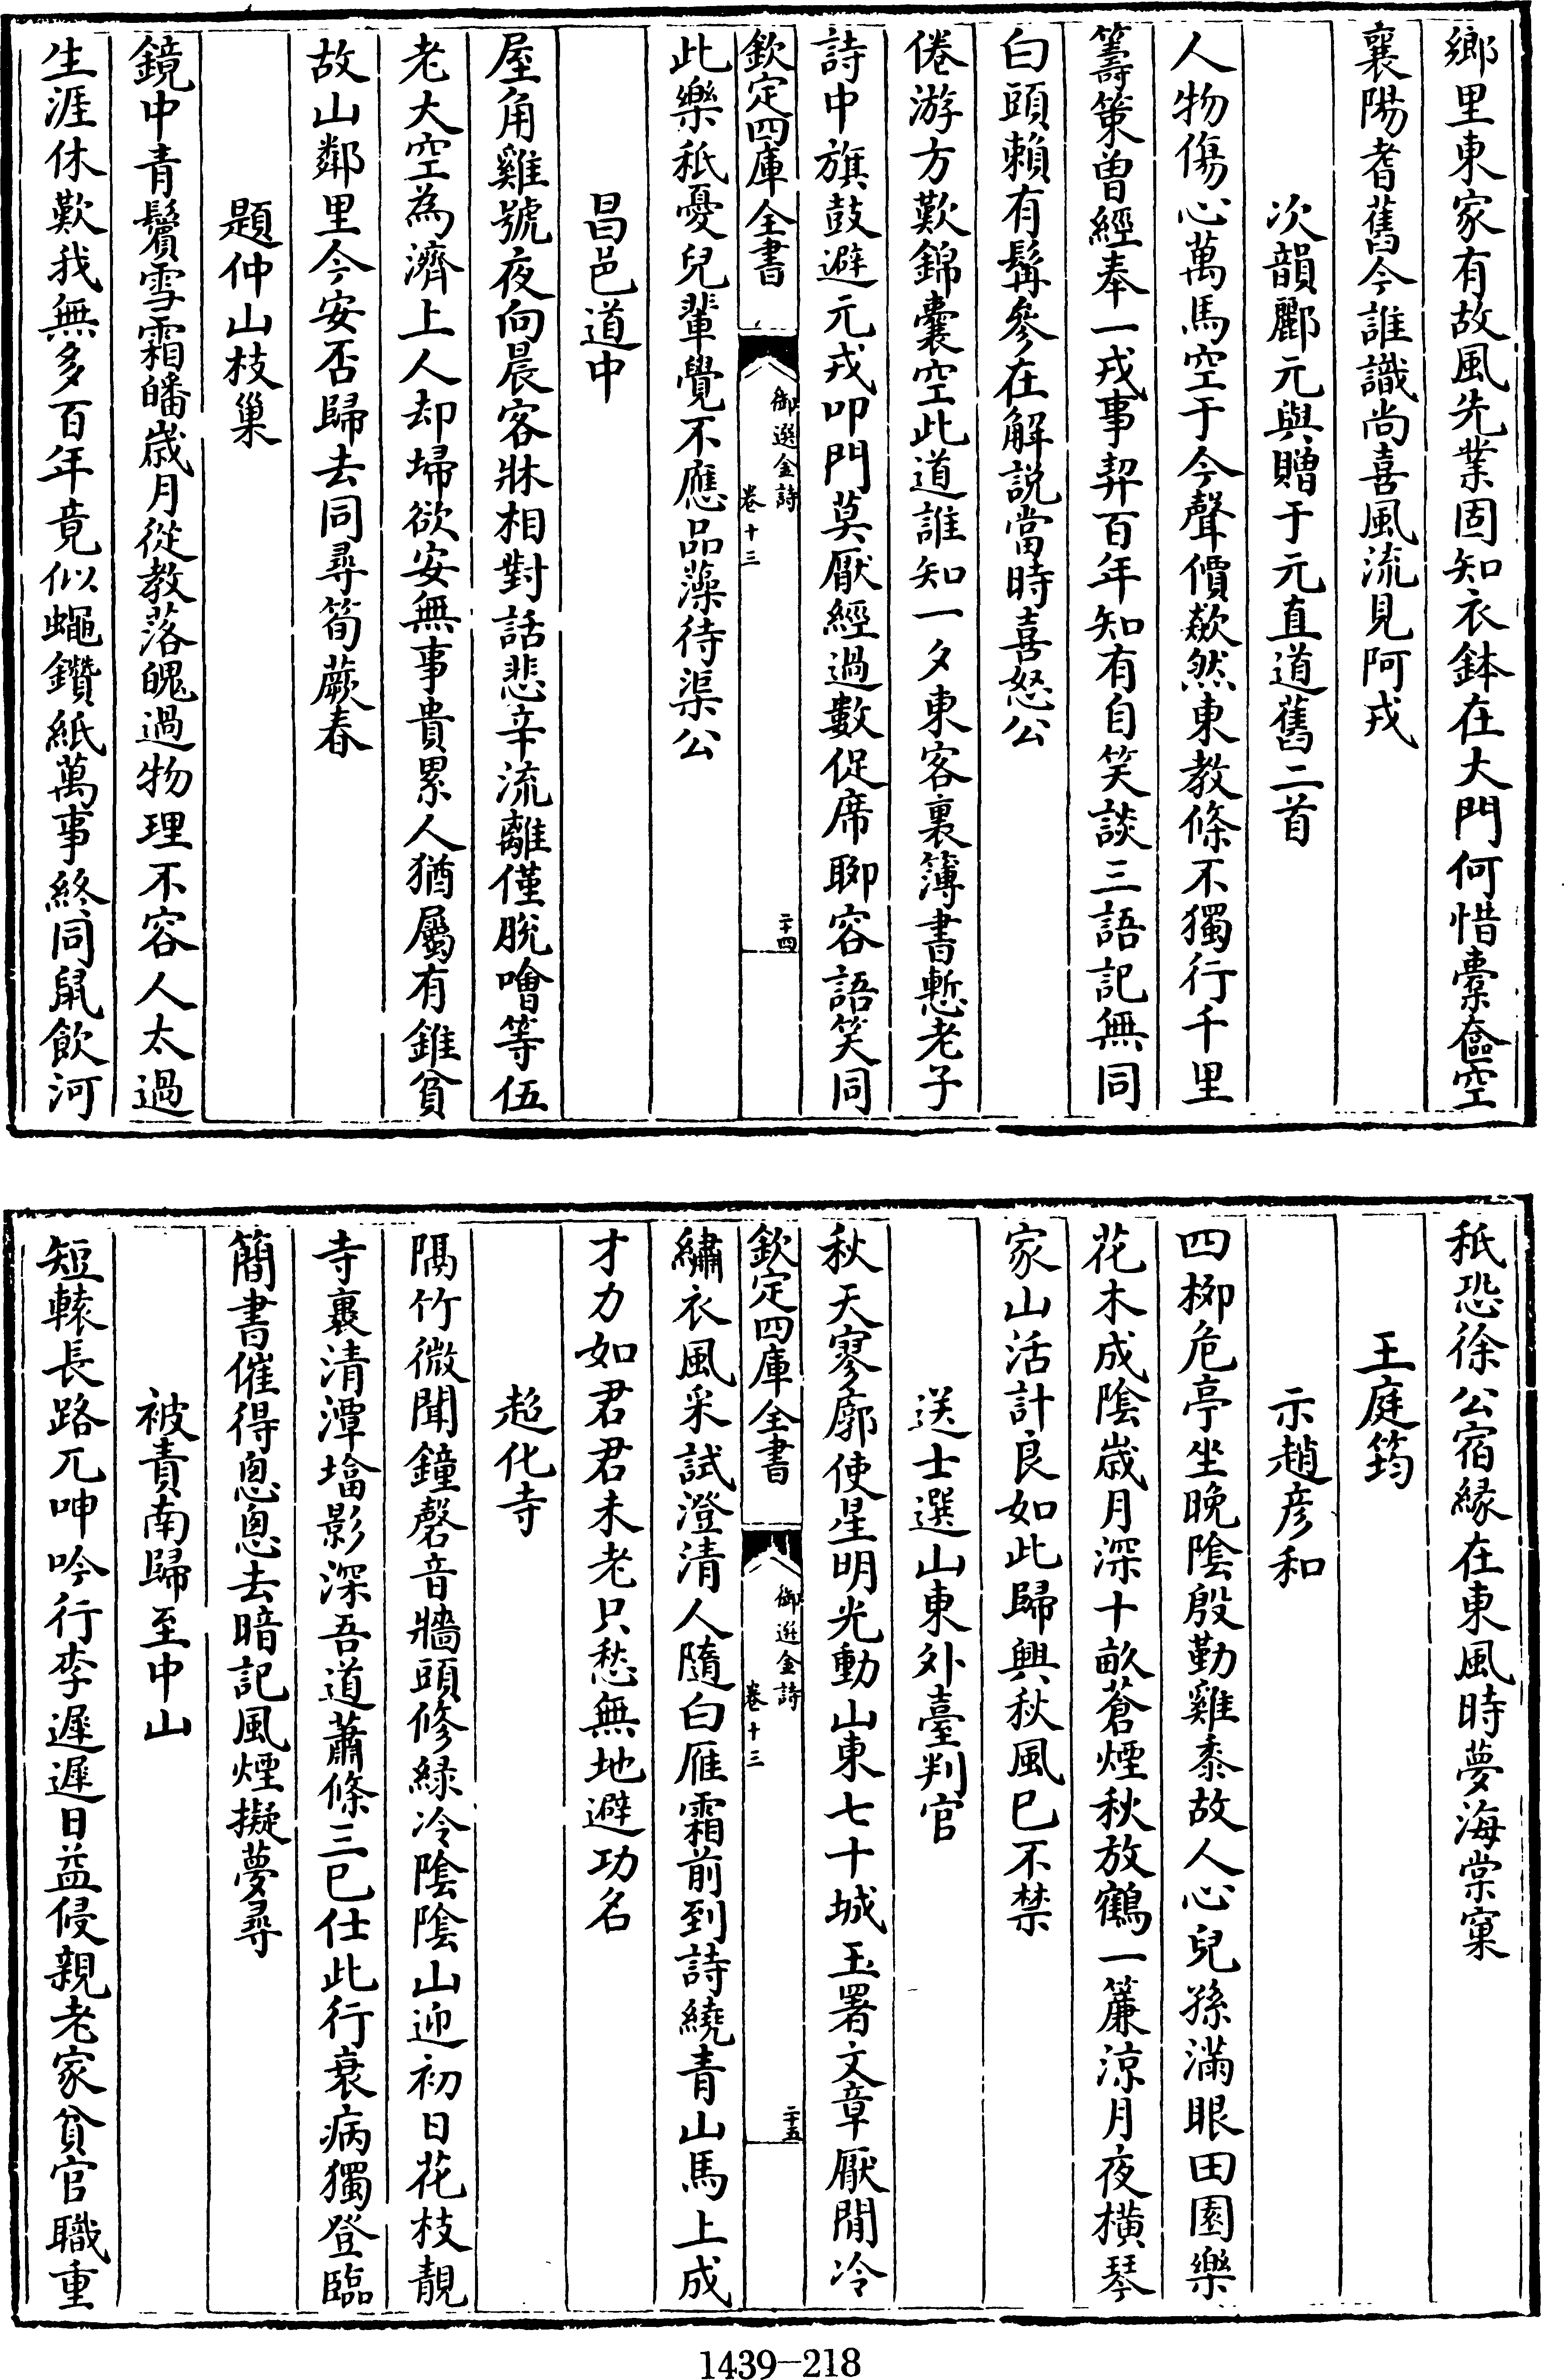 鄉里東家有故風先業固知衣鉢在大門何惜橐奩空
襄陽耆舊今誰識尚喜風流見阿戎
次韻酈元與贈于元直道舊二首
人物傷心萬馬空于今聲價歘然東教條不獨行千里
籌策曽經奉一戎事契百年知有自笑談三語記無同
白頭賴有髯參在解説當時喜怒公
倦游方歎錦囊空此道誰知一夕東客裏簿書慙老子
詩中旗鼓避元戎叩門莫厭經過數促席聊容語笑同
欽定四庫全書
御選金詩
卷十三
二十四
此樂秖憂兒輩覺不應品藻待渠公
昌邑道中
屋角雞號夜向晨客牀相對話悲辛流離僅脫噲等伍
老大空為濟上人却埽欲安無事貴累人猶屬有錐貧
故山鄰里今安否歸去同尋筍蕨春
題仲山枝巢
鏡中青鬢雪霜皤歲月從教落魄過物理不容人太過
生涯休歎我無多百年竟似蠅鑽紙萬事終同鼠飲河
秖恐徐公宿緣在東風時夢海棠窠
王庭筠
示趙彦和
四柳危亭坐晚陰殷勤雞黍故人心兒孫滿眼田園樂
花木成陰歲月深十畝蒼煙秋放鶴一簾涼月夜橫琴
家山活計良如此歸興秋風已不禁
送士選山東外臺判官
秋天寥廓使星明光動山東七十城玉署文章厭閒冷
欽定四庫全書
御選金詩
卷十三
二十五
繡衣風采試澄清人隨白雁霜前到詩繞青山馬上成
才力如君君未老只愁無地避功名
超化寺
隔竹微聞鐘磬音牆頭修緑冷陰陰山迎初日花枝靚
寺裏清潭塔影深吾道蕭條三已仕此行衰病獨登臨
簡書催得悤悤去暗記風煙擬夢尋
被責南歸至中山
短轅長路兀呻吟行李遲遲日益侵親老家貧官職重
1439—218